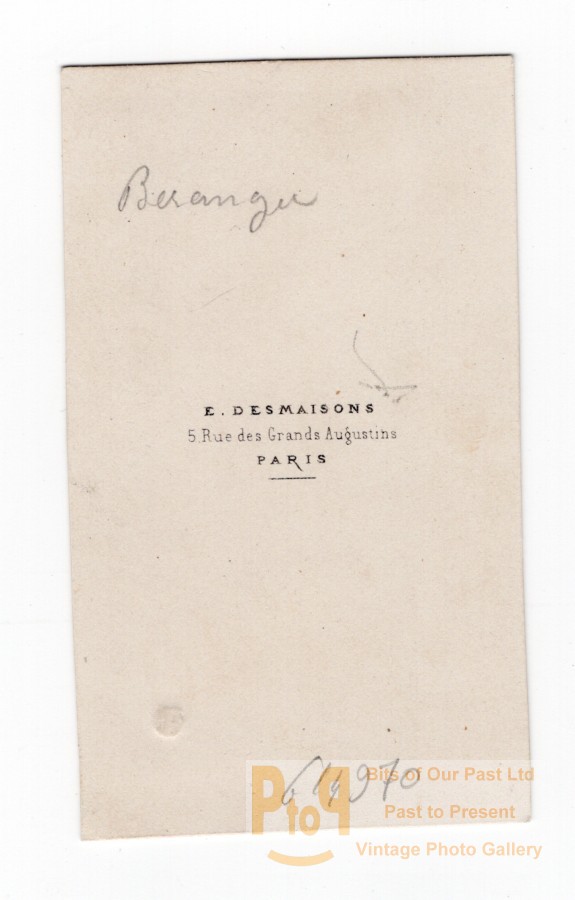 Beranger
E. DESMAISONS
5. Rue des Grands Augustins
PARIS
PtoP
Bits of Our Past Ltd
Past to Present
Vintage Photo Gallery